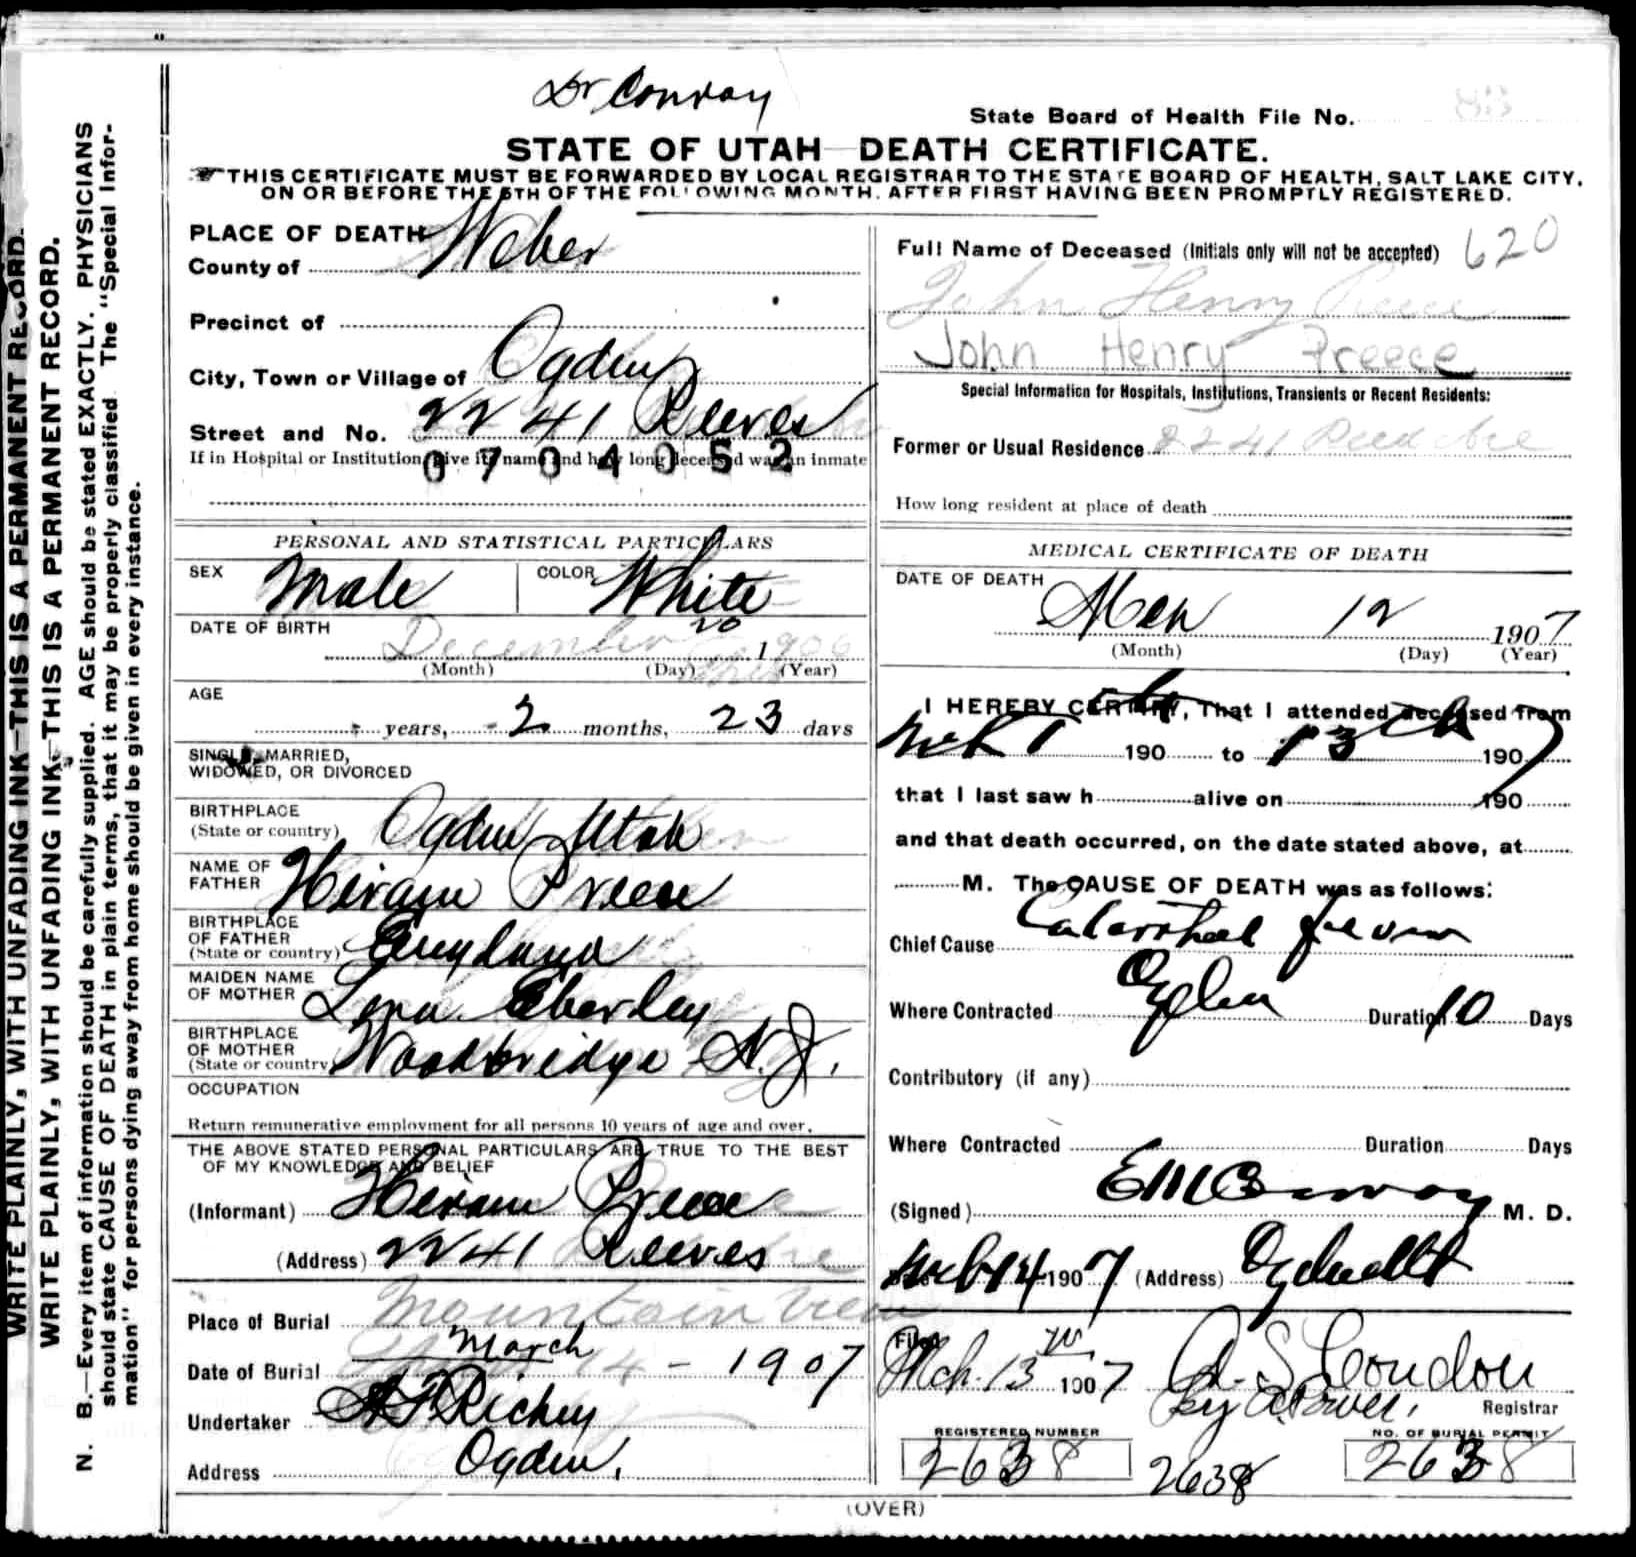 Dr Conroy
State Board of Health File No. 88
STATE OF UTAH—DEATH CERTIFICATE.
THIS CERTIFICATE MUST BE FORWARDED BY LOCAL REGISTRAR TO THE STATE BOARD OF HEALTH, SALT LAKE CITY,
ON OR BEFORE THE 5TH OF THE FOLLOWING MONTH, AFTER FIRST HAVING BEEN PROMPTLY REGISTERED.
WRITE PLAINLY, WITH UNFADING INK—THIS IS A PERMANENT RECORD.
WRITE PLAINLY, WITH UNFADING INK—THIS IS A PERMANENT RECORD.
N. B.—Every item of information should be carefully supplied. AGE should be stated EXACTLY. PHYSICIANS
should state CAUSE OF DEATH in plain terms, that it may be properly classified. The "Special Infor-
mation" for persons dying away from home should be given in every instance.
PLACE OF DEATH
County of Weber
Precinct of
City, Town or Village of Ogden
Street and No. 2241 Reeves
If in Hospital or Institution, give its name and how long deceased was an inmate
0704052
PERSONAL AND STATISTICAL PARTICULARS
SEX Male COLOR White
DATE OF BIRTH December 20 1906
(Month) (Day) (Year)
AGE years, 2 months, 23 days
SINGLE, MARRIED,
WIDOWED, OR DIVORCED
BIRTHPLACE
(State or country) Ogden Utah
NAME OF
FATHER Hiram Preece
BIRTHPLACE
OF FATHER
(State or country) England
MAIDEN NAME
OF MOTHER Lena Eberley
BIRTHPLACE
OF MOTHER
(State or country) Woodbridge N.J.
OCCUPATION
Return remunerative employment for all persons 10 years of age and over.
THE ABOVE STATED PERSONAL PARTICULARS ARE TRUE TO THE BEST
OF MY KNOWLEDGE AND BELIEF
(Informant) Hiram Preece
(Address) 2241 Reeves
Place of Burial Mountain View
Date of Burial March 14 - 1907
Undertaker Richey
Address Ogden.
Full Name of Deceased (Initials only will not be accepted) 620
John Henry Preece
John Henry Preece
Special Information for Hospitals, Institutions, Transients or Recent Residents:
Former or Usual Residence 2241 Reed Ave
How long resident at place of death
MEDICAL CERTIFICATE OF DEATH
DATE OF DEATH Mch 12 1907
(Month) (Day) (Year)
I HEREBY CERTIFY, That I attended deceased from
190 to 13 1907
that I last saw h alive on 190
and that death occurred, on the date stated above, at
M. The CAUSE OF DEATH was as follows:
Chief Cause Catarrhal
Where Contracted Ogden Duration 10 Days
Contributory (if any)
Where Contracted Duration Days
(Signed) E M Conroy M. D.
14 1907 (Address) Ogden
Filed
Mch. 13 1907
Registrar
REGISTERED NUMBER
2638
2638
NO. OF BURIAL PERMIT
2638
(OVER)